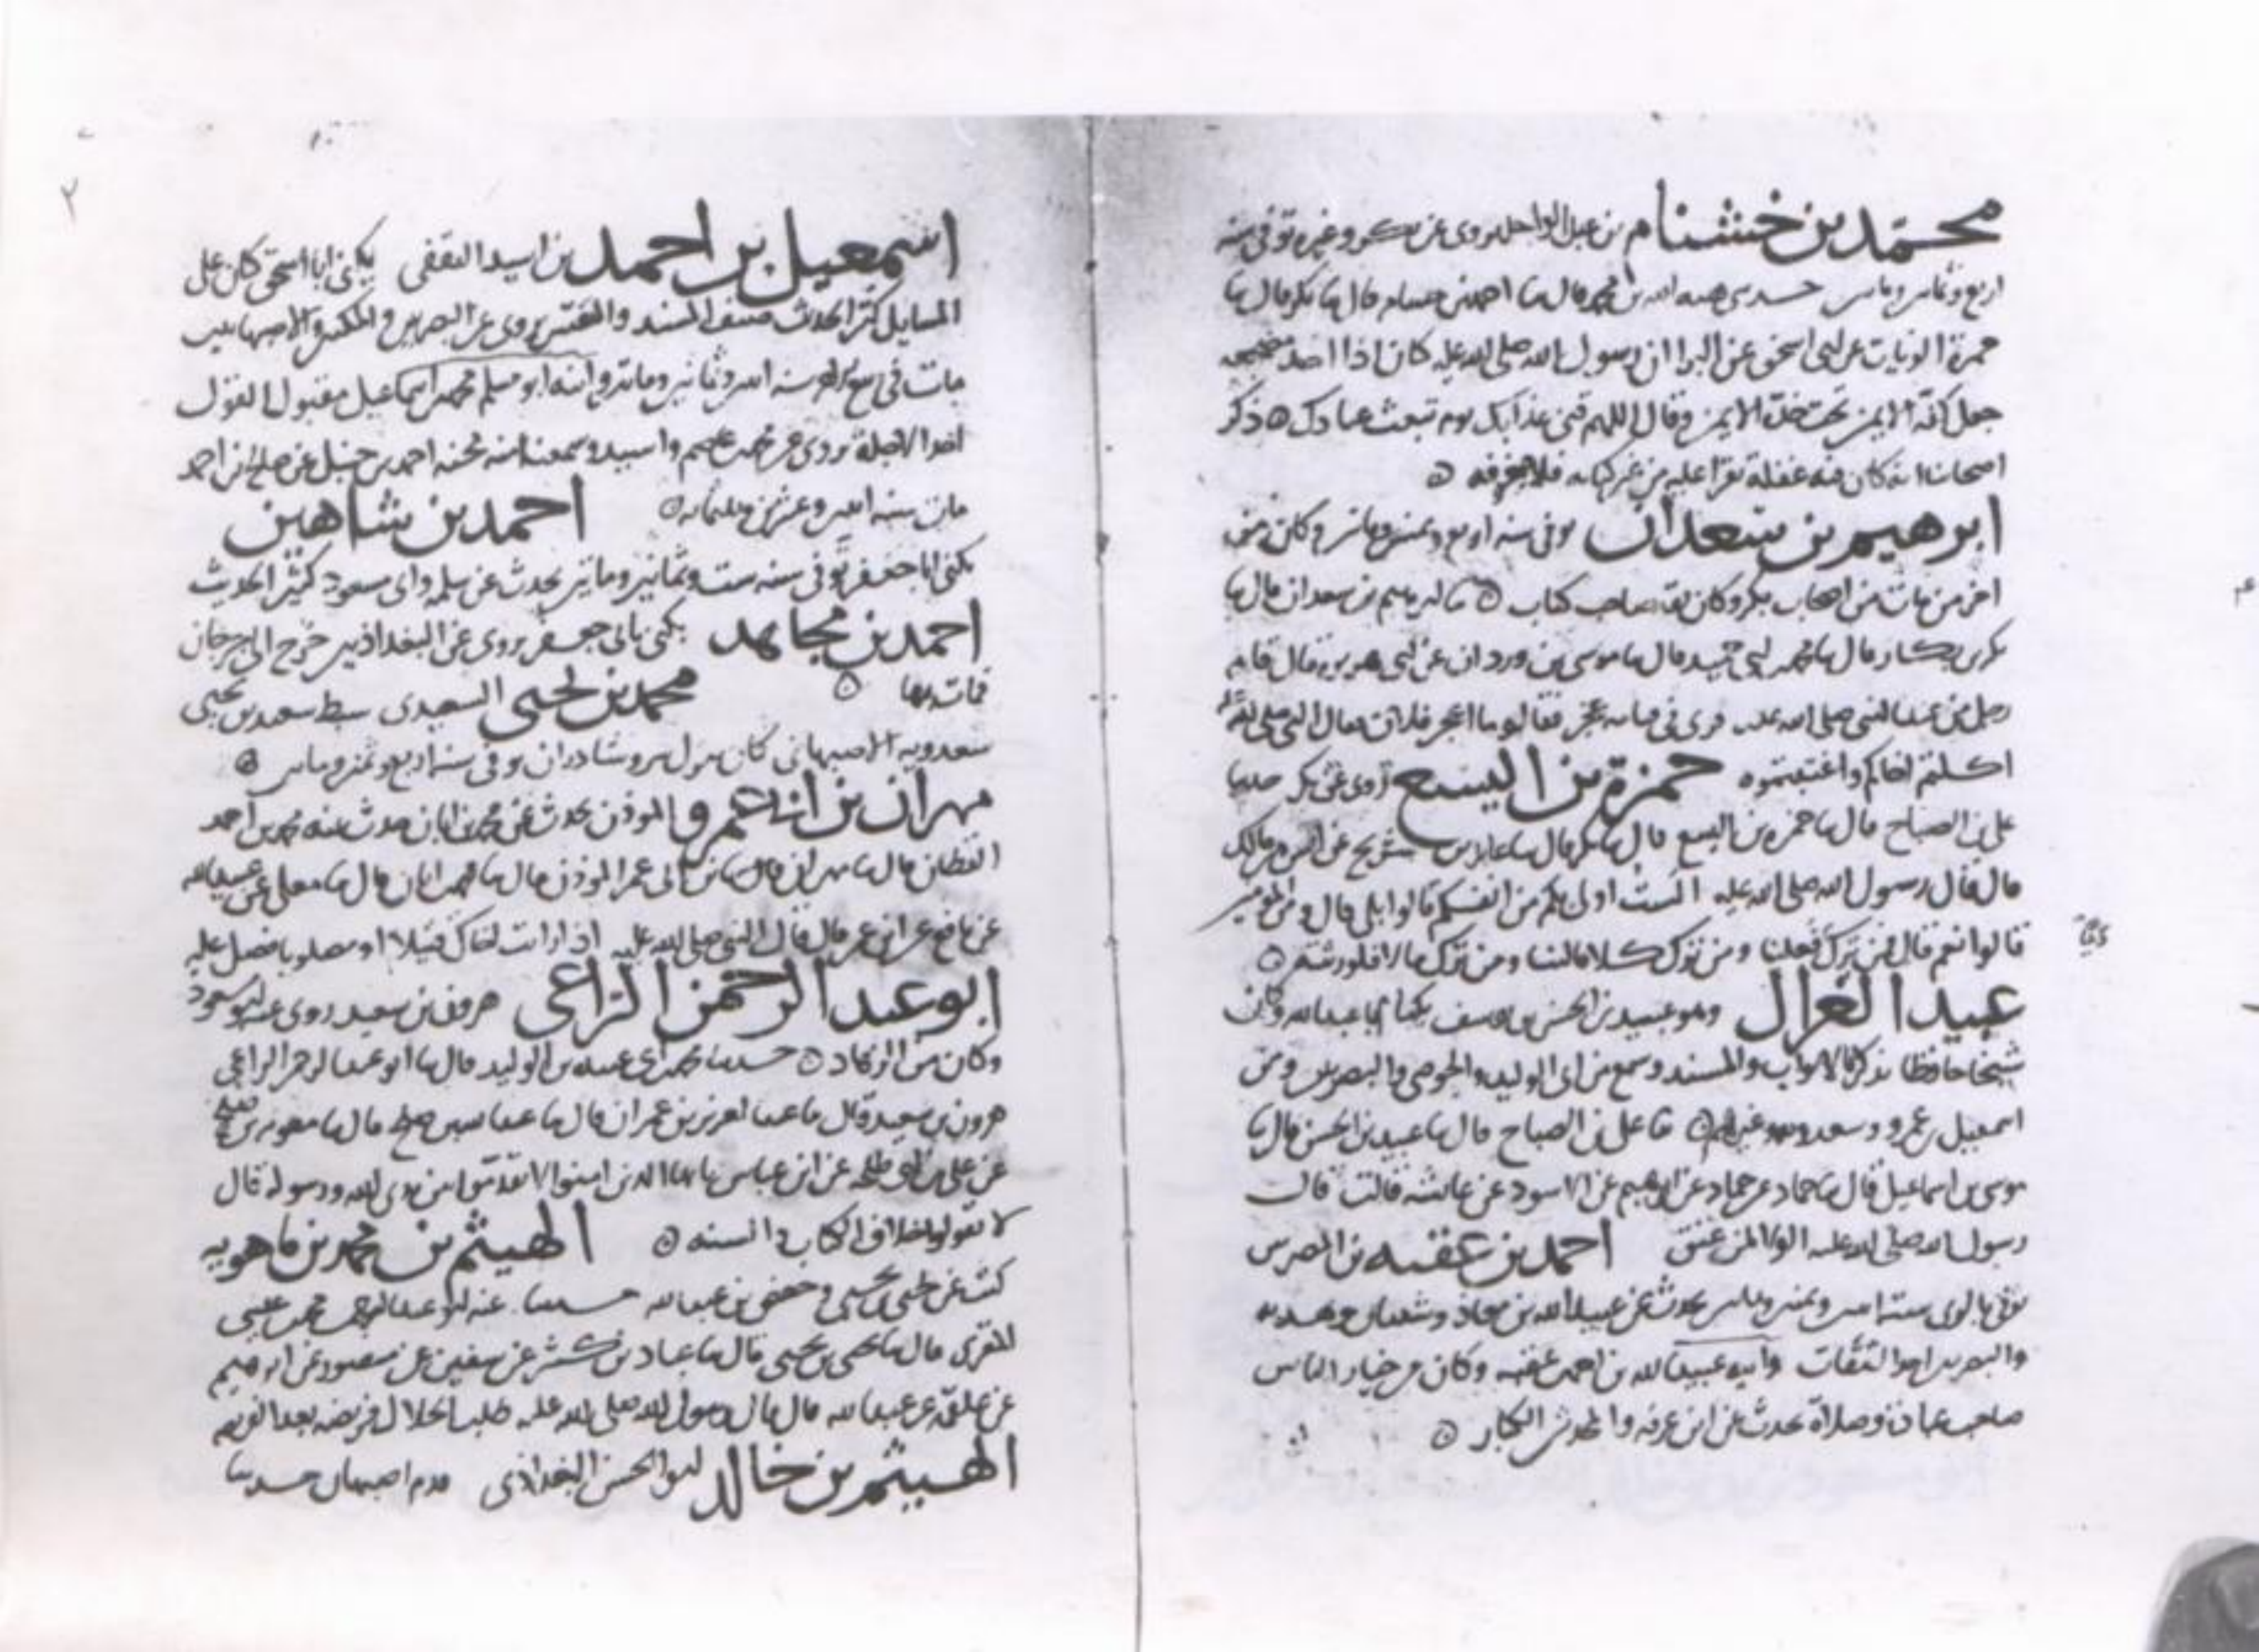 محمد بن خشنام بن عبد الواحد روى عن بكر وغيره توفي سنة
اربع وثمانين ومايتين حدثني هبه الله بن محمد قال ثنا احمد بن خشنام قال ثنا بكر قال ثنا
حمزة الزيات عن ابي اسحق عن البرا ان رسول الله صلى الله عليه كان اذا اخذ مضجعه
جعل كفه الايمن تحت خده الايمن وقال اللهم قني عذابك يوم تبعث عبادك ه ذكر
اصحابنا انه كان فيه غفلة يقرا عليه من غير كتابه فلا يعرفه ه
ابرهيم بن سعدان توفي سنة اربع وثمنين ومايتين وكان من
اخر من مات من اصحاب بكر وكان ثقه صاحب كتاب ه ثنا ابرهيم بن سعدان قال ثنا
بكر بن بكار قال ثنا محمد بن ابي حميد قال ثنا موسى بن وردان عن ابي هريرة قال قام
رجل من عند النبي صلى الله عليه فرى في قيامه عجز فقالوا ما اعجز فلان فقال النبي صلى الله
اكلتم اخاكم واغتبتموه حمزة بن اليسع روى عن بكر حدثنا
علي بن الصباح قال ثنا حمزه بن اليسع قال ثنا بكر قال ثنا عايذ بن شريح عن انس بن مالك
قال قال رسول الله صلى الله عليه الست اولى بكم من انفسكم قالوا بلى قال ومن المؤمنين
قالوا نعم قال فمن ترك دينا فعلينا ومن ترك كلا فالينا ومن ترك مالا فلورثته ه
عبيد الغزال وهو عبيد بن الحسن بن يوسف يكنا ابا عبد الله وكان
شيخا حافظا يذاكر بالابواب والمسند وسمع من ابي الوليد والحوضي والبصريين ومن
اسمعيل بن عمرو وسعدويه وغيرهم ه ثنا علي بن الصباح قال ثنا عبيد بن الحسن قال ثنا
موسى بن اسماعيل قال ثنا حماد عن حماد عن ابرهيم عن الاسود عن عائشه قالت قال
رسول الله صلى الله عليه الولا لمن عتق احمد بن عقبه بن المضرس
توفي بالري سنة وثمنين ومايتين يحدث عن عبيد الله بن معاذ وشيبان وهدبه
والبصريين احد الثقات وابنه عبيد الله بن احمد بن عقبه وكان من خيار الناس
صاحب عبادة وصلاة يحدث عن ابن عرفه والمحدثين الكبار ه
٢
اسمعيل بن احمد بن اسيد الثقفي يكنى ابا اسحق كان على
المسايل كثير الحديث صنف المسند والتفسير يروي عن البصريين والمكيين والاصبهانيين
مات في سنه اثنين وثمانين ومايتين وابنه ابو مسلم محمد بن اسماعيل مقبول القول
احد الاجلة يروي عن محمد بن عاصم واسيد وسمعنا منه محنه احمد بن حنبل عن صالح بن احمد
مات سنه اثنين وعشرين وثلثمايه ه احمد بن شاهين
يكنى ابا جعفر توفي سنه ست وثمانين ومايتين يحدث عن سلمه وابي مسعود كثير الحديث
احمد بن مجاهد يكنى بابي جعفر يروي عن البغداذيين خرج الى جرجان
فمات بها ه محمد بن يحيى السعيدي سبط سعيد بن يحيى
سعدويه الاصبهاني كان ينزل توفي سنة اربع وثمنين ومايتين ه
مهران بن ابي عمرو الموذن يحدث عن محمد بن ابان حدث عنه محمد بن احمد
القطان قال ثنا مهران بن ابي عمر الموذن قال ثنا محمد بن ابان قال ثنا معلى عن عبيد الله
عن نافع عن ابن عمر قال قال النبي صلى الله عليه اذا رايت اخاك قتيلا او مصلوبا فصل عليه
ابو عبد الرحمن الراعي هرون بن سعيد روى عنه ابو مسعود
وكان من الزهاد ه حدثنا محمد بن عبد الله بن الوليد قال ثنا ابو عبد الرحمن الراعي
هرون بن سعيد قال ثنا عبد العزيز بن عمران قال ثنا عبد الله بن صالح قال ثنا معويه بن صالح
عن علي بن ابي طلحه عن ابن عباس يا ايها الذين امنوا لا تقدموا بين يدي الله ورسوله قال
لا تقولوا خلاف الكتاب والسنه ه الهيثم بن محمد بن ماهويه
كتب عن يحيى بن يحيى وحفص بن عبد الله حدثنا عنه ابو عبد الرحمن محمد بن عيسى
المقري قال ثنا يحيى بن يحيى قال ثنا عباد بن كثير عن سفيان عن منصور عن ابرهيم
عن علقمة عن عبد الله قال قال رسول الله صلى الله عليه طلب الحلال فريضه بعد الفريضه
الهيثم بن خالد ابو الحسن البغداذي قدم اصبهان حدثنا